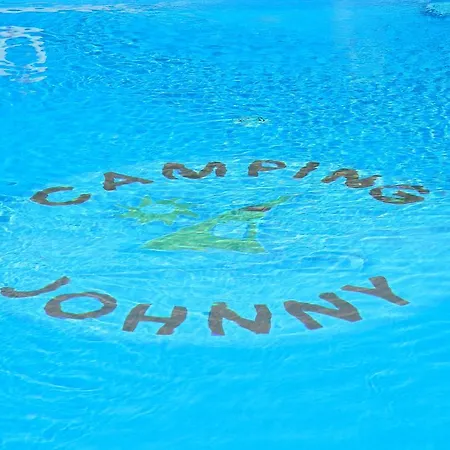 CAMPING
JOHNNY